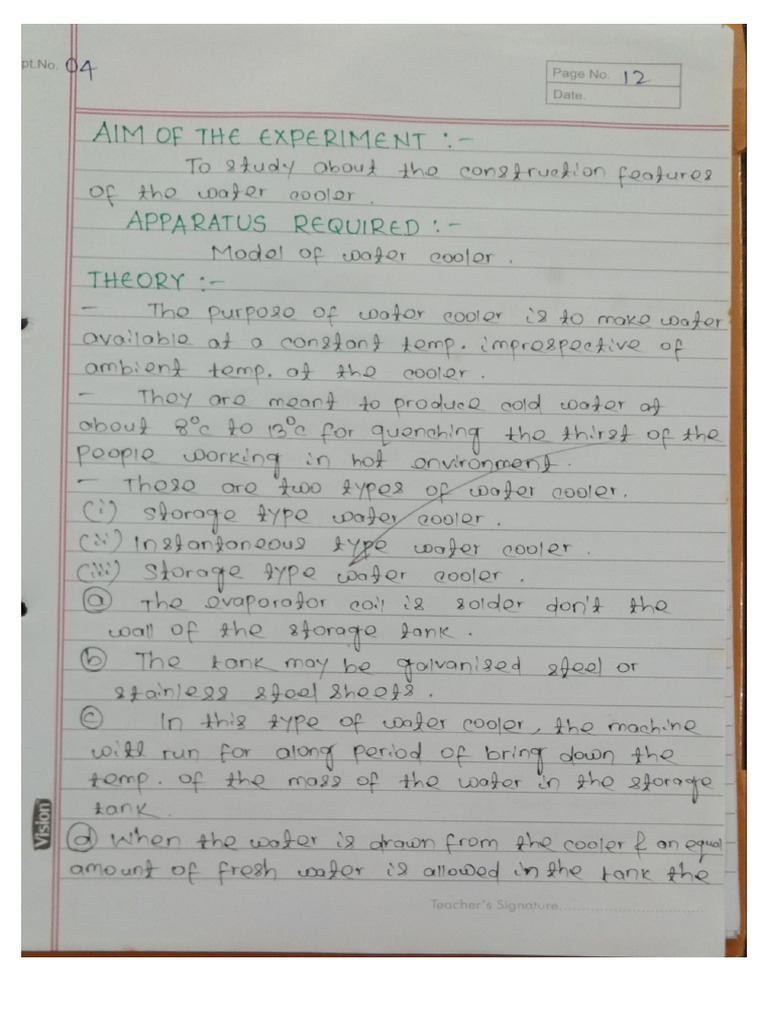 pt.No. 04
Page No. 12
Date.
AIM OF THE EXPERIMENT :-
To study about the construction features
of the water cooler.
APPARATUS REQUIRED :-
Model of water cooler.
THEORY :-
- The purpose of water cooler is to make water
available at a constant temp. imprespective of
ambient temp. at the cooler.
- They are meant to produce cold water at
about 8°c to 13°c for quenching the thirst of the
people working in hot environment.
- These are two types of water cooler.
(i) Storage type water cooler.
(ii) Instantaneous type water cooler.
(iii) Storage type water cooler.
(a) The evaporator coil is solder don't the
wall of the storage tank.
(b) The tank may be galvanised steel or
stainless steel sheets.
(c) In this type of water cooler, the machine
will run for along period of bring down the
temp. of the mass of the water in the storage
tank.
Vision
(d) When the water is drawn from the cooler & an equal
amount of fresh water is allowed in the tank the
Teacher's Signature